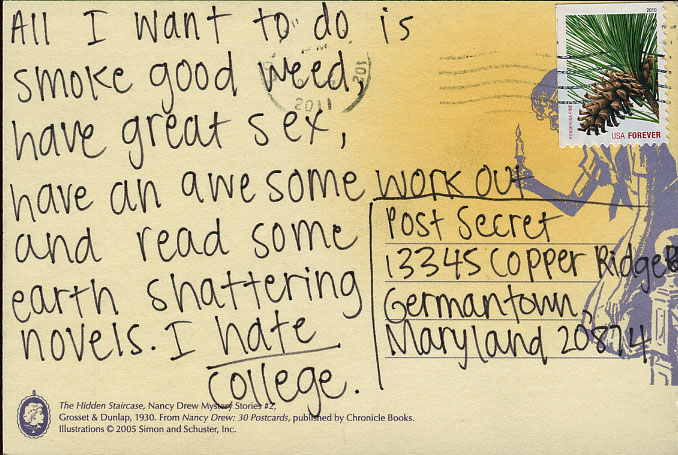 All I want to do is
smoke good weed,
have great sex,
have an awesome work out
and read some
earth shattering
novels. I hate
college.
2011
201
2010
PONDEROSA PINE
USA FOREVER
Post Secret
13345 Copper Ridge
Germantown,
Maryland 20874
The Hidden Staircase, Nancy Drew Mystery Stories #2,
Grosset & Dunlap, 1930. From Nancy Drew: 30 Postcards, published by Chronicle Books.
Illustrations © 2005 Simon and Schuster, Inc.